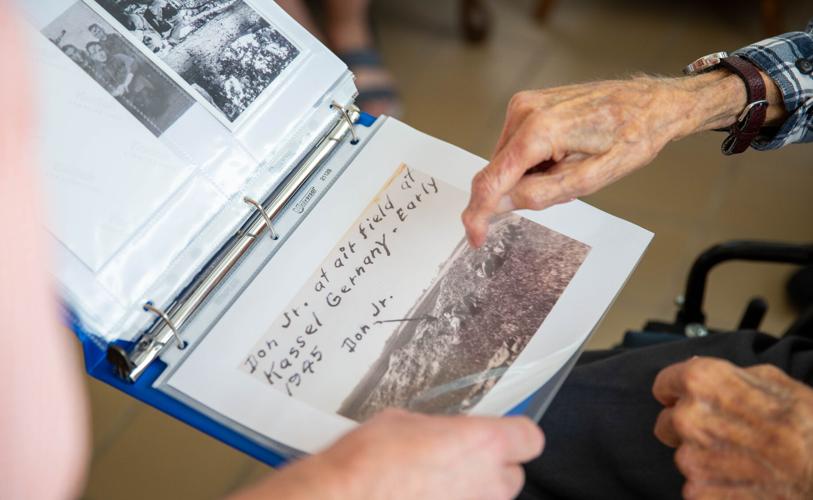 Don Jr. at air field at
Kassel Germany - Early
1945
Don Jr.